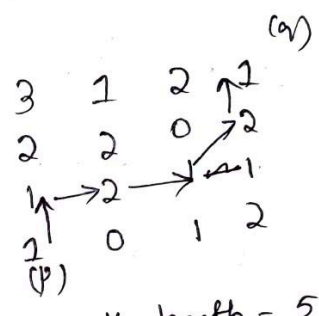 (q)
3 1 2 1
2 2 0 2
1 2 1 1
1 0 1 2
(p)
length = 5